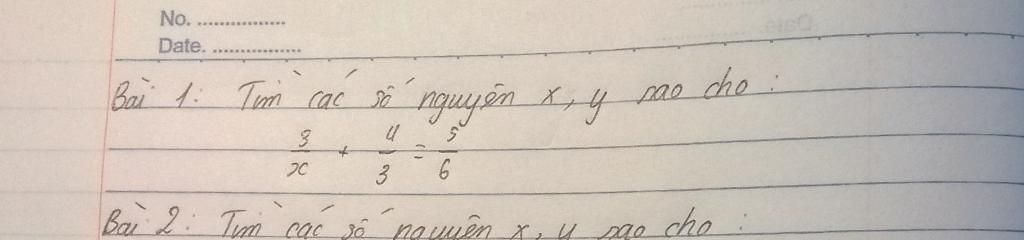 No. ................
Date. ................
Bài 1: Tìm các số nguyên x, y sao cho :
3/x + y/3 = 5/6
Bài 2: Tìm các số nguyên x, y sao cho :